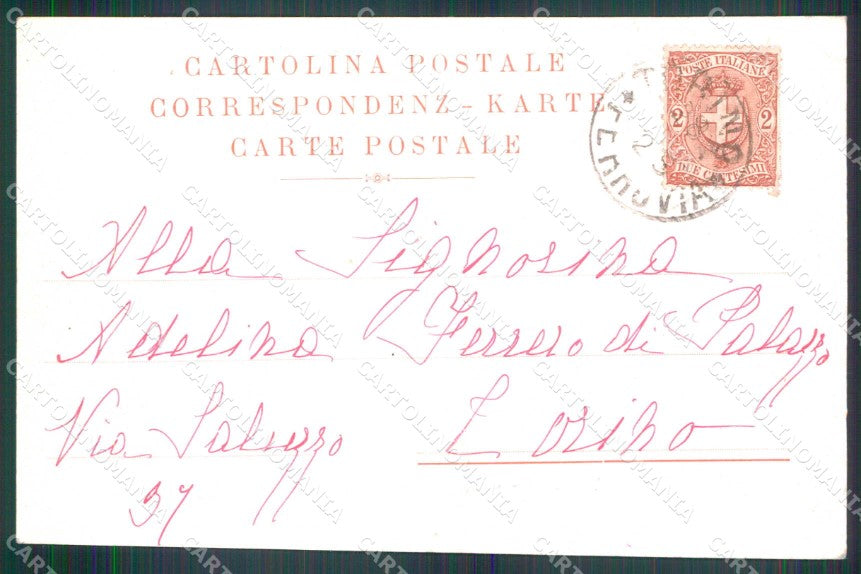 CARTOLINA POSTALE
CORRESPONDENZ-KARTE
CARTE POSTALE
POSTE ITALIANE
2 2
DUE CENTESIMI
TORINO
* FERROVIA
Alla Signorina
Adelina Ferrero di Palazzo
Via Saluzzo Torino
37
CARTOLINOMANIA